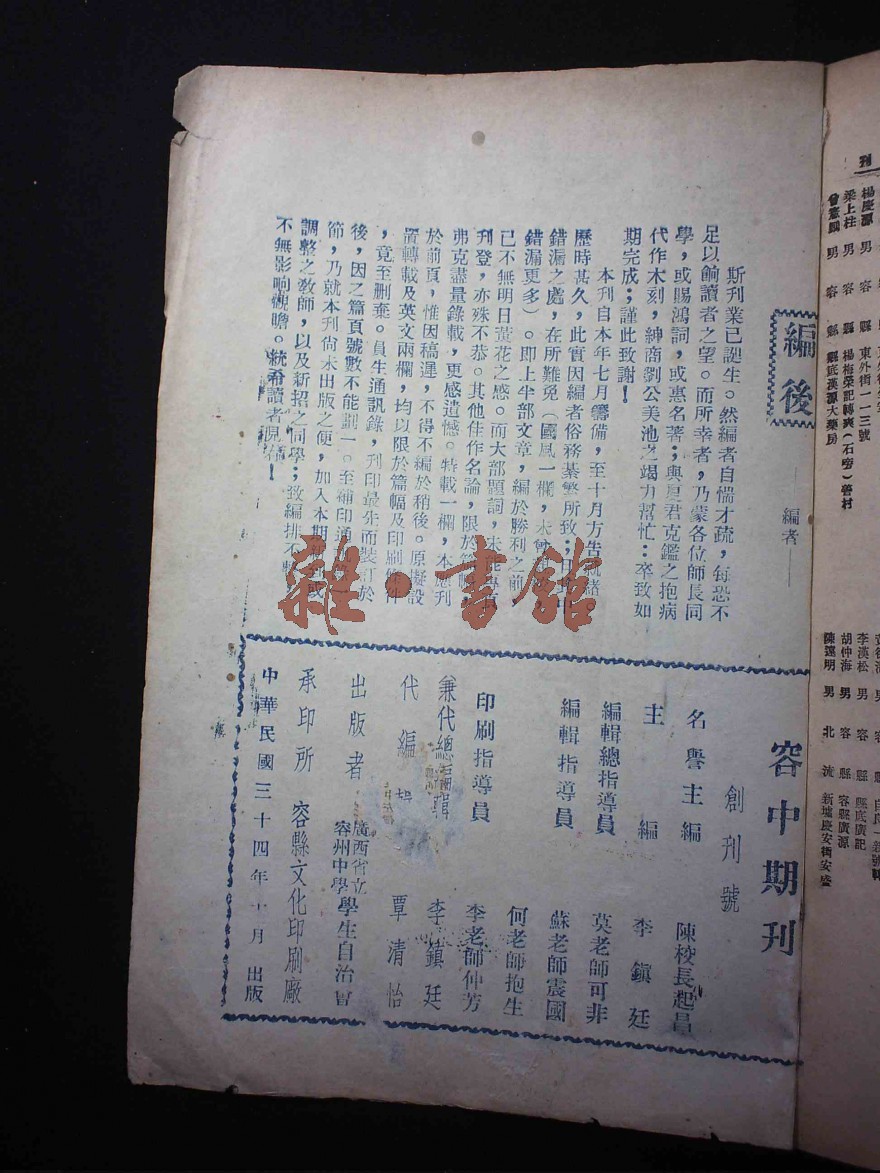 編後
——編者——
斯刊業已誕生。然編者自惴才疏，每恐不
足以餉讀者之望。而所幸者，乃蒙各位師長同
學，或賜鴻詞，或惠名著；與夏君克鑑之抱病
代作木刻，紳商劉公美池之竭力幫忙：卒致如
期完成；謹此致謝！
本刊自本年七月籌備，至十月方告就緒。
歷時甚久，此實因編者俗務綦繁所致；
錯漏之處，在所難免（國風一欄，未
錯漏更多）。即上半部文章，編於勝利之前，
已不無明日黃花之感。而大部題詞，未能
刊登，亦殊不恭。其他佳作名論，限於篇幅，
弗克盡量錄載，更感遺憾。特載一欄，本應刊
於前頁，惟因稿遲，不得不編於稍後。原擬設
置轉載及英文兩欄，均以限於篇幅及印刷條件
，竟至删棄。員生通訊錄，刊印最先而裝訂於
後，因之篇頁號數不能劃一。至補印通
節，乃就本刊尙未出版之便，加入本期
調整之敎師，以及新招之同學；致編排不
不無影响觀瞻。統希讀者見諒！
容中期刊
創刊號
名譽主編 陳校長起昌
主編 李鎮廷
編輯總指導員 莫老師可非
編輯指導員 蘇老師震國
何老師抱生
印刷指導員 李老師仲芳
兼代總編輯 李鎮廷
代編輯 覃清怡
出版者 廣西省立容州中學學生自治會
承印所 容縣文化印刷廠
中華民國三十四年十月 出版
雜·書館
刊
楊慶源 男 容縣 東外街一一三號
梁上柱 男 容縣 楊梅榮記轉爽（石嶺）善村
曾憲 男 容縣 縣底漢源大藥房
李漢松 男 容縣 縣底廣記
胡仲海 男 容縣 容縣廣源
陳遠明 男 北流 新墟慶安橋安盛